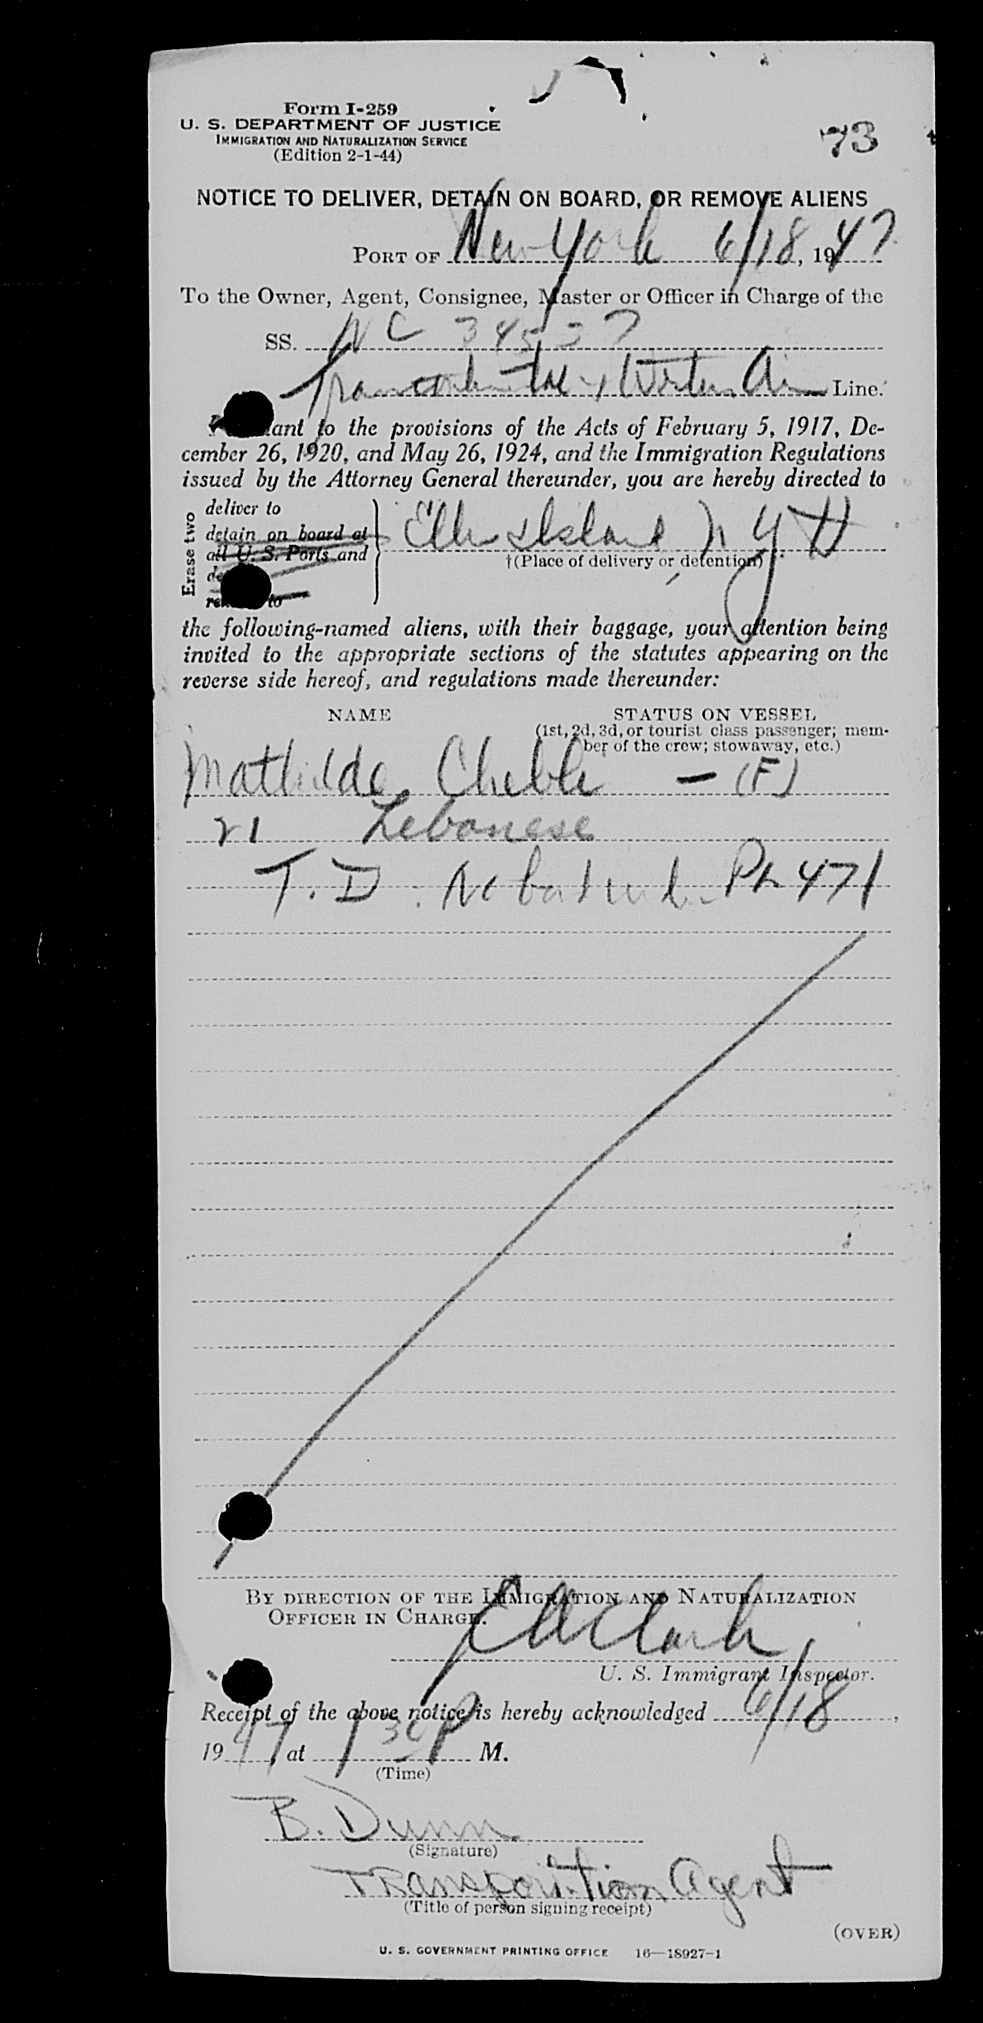 Form I-259
U. S. DEPARTMENT OF JUSTICE
IMMIGRATION AND NATURALIZATION SERVICE
(Edition 2-1-44)
73
NOTICE TO DELIVER, DETAIN ON BOARD, OR REMOVE ALIENS
PORT OF New York 6/18, 1947
To the Owner, Agent, Consignee, Master or Officer in Charge of the
SS. NC 34537
Transcontinental + Western Air Line.
to the provisions of the Acts of February 5, 1917, De-
cember 26, 1920, and May 26, 1924, and the Immigration Regulations
issued by the Attorney General thereunder, you are hereby directed to
Erase two
deliver to
detain on board at
all U. S. Ports and
to
Ellis Island N Y H
†(Place of delivery or detention)
the following-named aliens, with their baggage, your attention being
invited to the appropriate sections of the statutes appearing on the
reverse side hereof, and regulations made thereunder:
NAME
STATUS ON VESSEL
(1st, 2d, 3d, or tourist class passenger; mem-
ber of the crew; stowaway, etc.)
Mathilde Cheble — (F)
21 Lebanese
T. D. No 471
BY DIRECTION OF THE IMMIGRATION AND NATURALIZATION
OFFICER IN CHARGE.
Clark
U. S. Immigrant Inspector.
Receipt of the above notice is hereby acknowledged 6/18,
1947, at 1 30 P M.
(Time)
B. Dunn
(Signature)
Transportation Agent
(Title of person signing receipt)
(OVER)
U. S. GOVERNMENT PRINTING OFFICE 16—18927-1